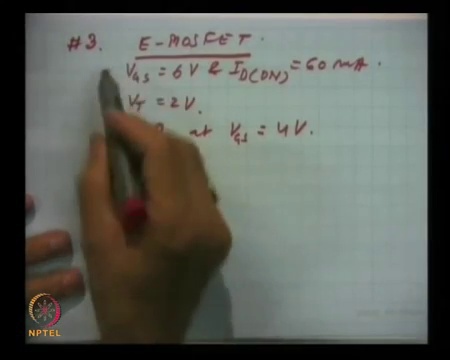 #3. E-MOSFET.
VGS = 6V & ID(ON) = 60 mA.
VT = 2V.
at VGS = 4V.
NPTEL